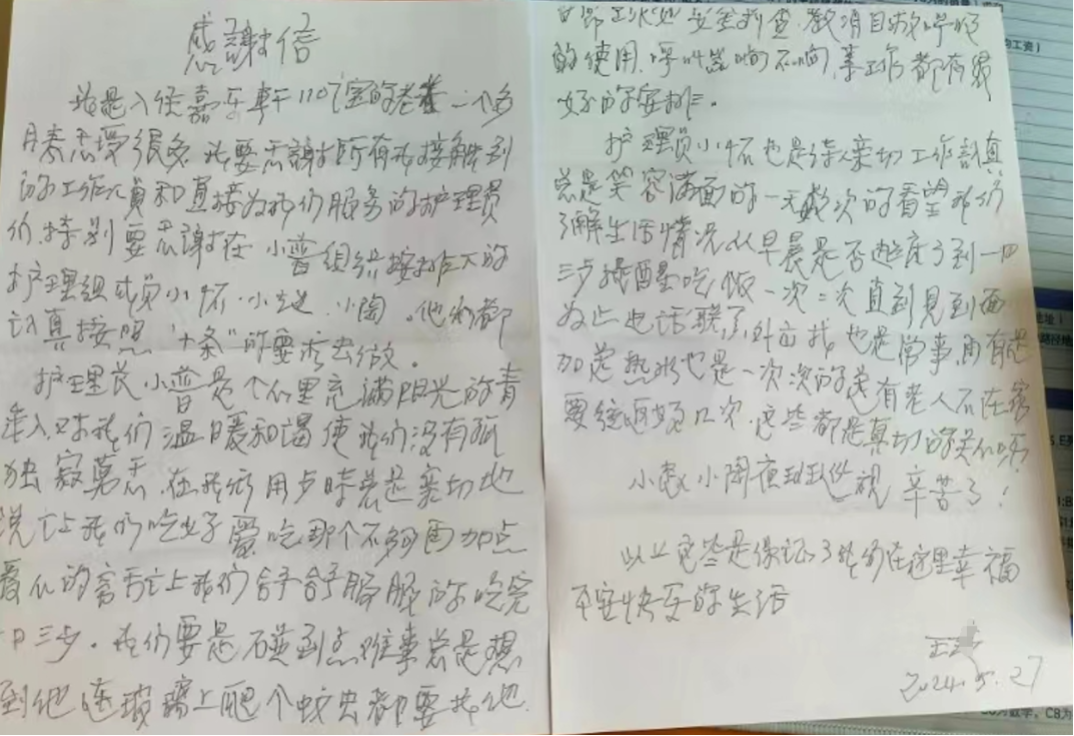 感謝信
我是入住嘉乐軒110室的老 一个多
月来感受很多，我要感謝所有我接触到
的工作人員和直接为我们服务的护理员
们，特别要感謝在小普组 按排下的
护理组成员小怀、小赵、小陶。他们都
认真按照"十条"的要求去做。
护理长小普是个心里充满阳光的青
年人，对我们温暖和谒使我们没有孤
独寂寞感，在我们用歺時总是亲切地
说 上我们吃 爱吃那个不够再加点
爱心的 上我们舒舒服服的吃完
一日三歺。我们要是碰到点难事总是想
到他连玻璃上爬个蚊虫都要找他。
安全排查，教消 呼吸
的使用，呼叫器响不响，事 都有很
好的安排。
护理员小怀也是待人亲切工作認真
总是笑容满面的一天数次的看望我们
了解生活情况，从早晨是否 床了到一日
三歺提醒吃饭一次二次直到見到面
为止，电话联 也是常事，用
加送热水也是一次次的送有老人不在家
要往返好几次，这些都是真切的关心呀
小赵小陶夜班 视 辛苦了！
以上这些是保证了我们在这里幸福
平安快乐的生活
2024.5.27